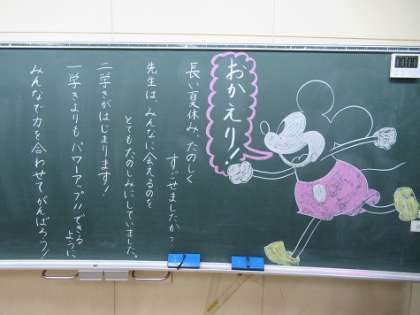 おかえり!!
長い夏休み、たのしく
すごせましたか?
先生は、みんなに会えるのを
とてもたのしみにしていました。
二学きがはじまります!
一学きよりもパワーアップできる
ように
みんなで力を合わせてがんばろう!